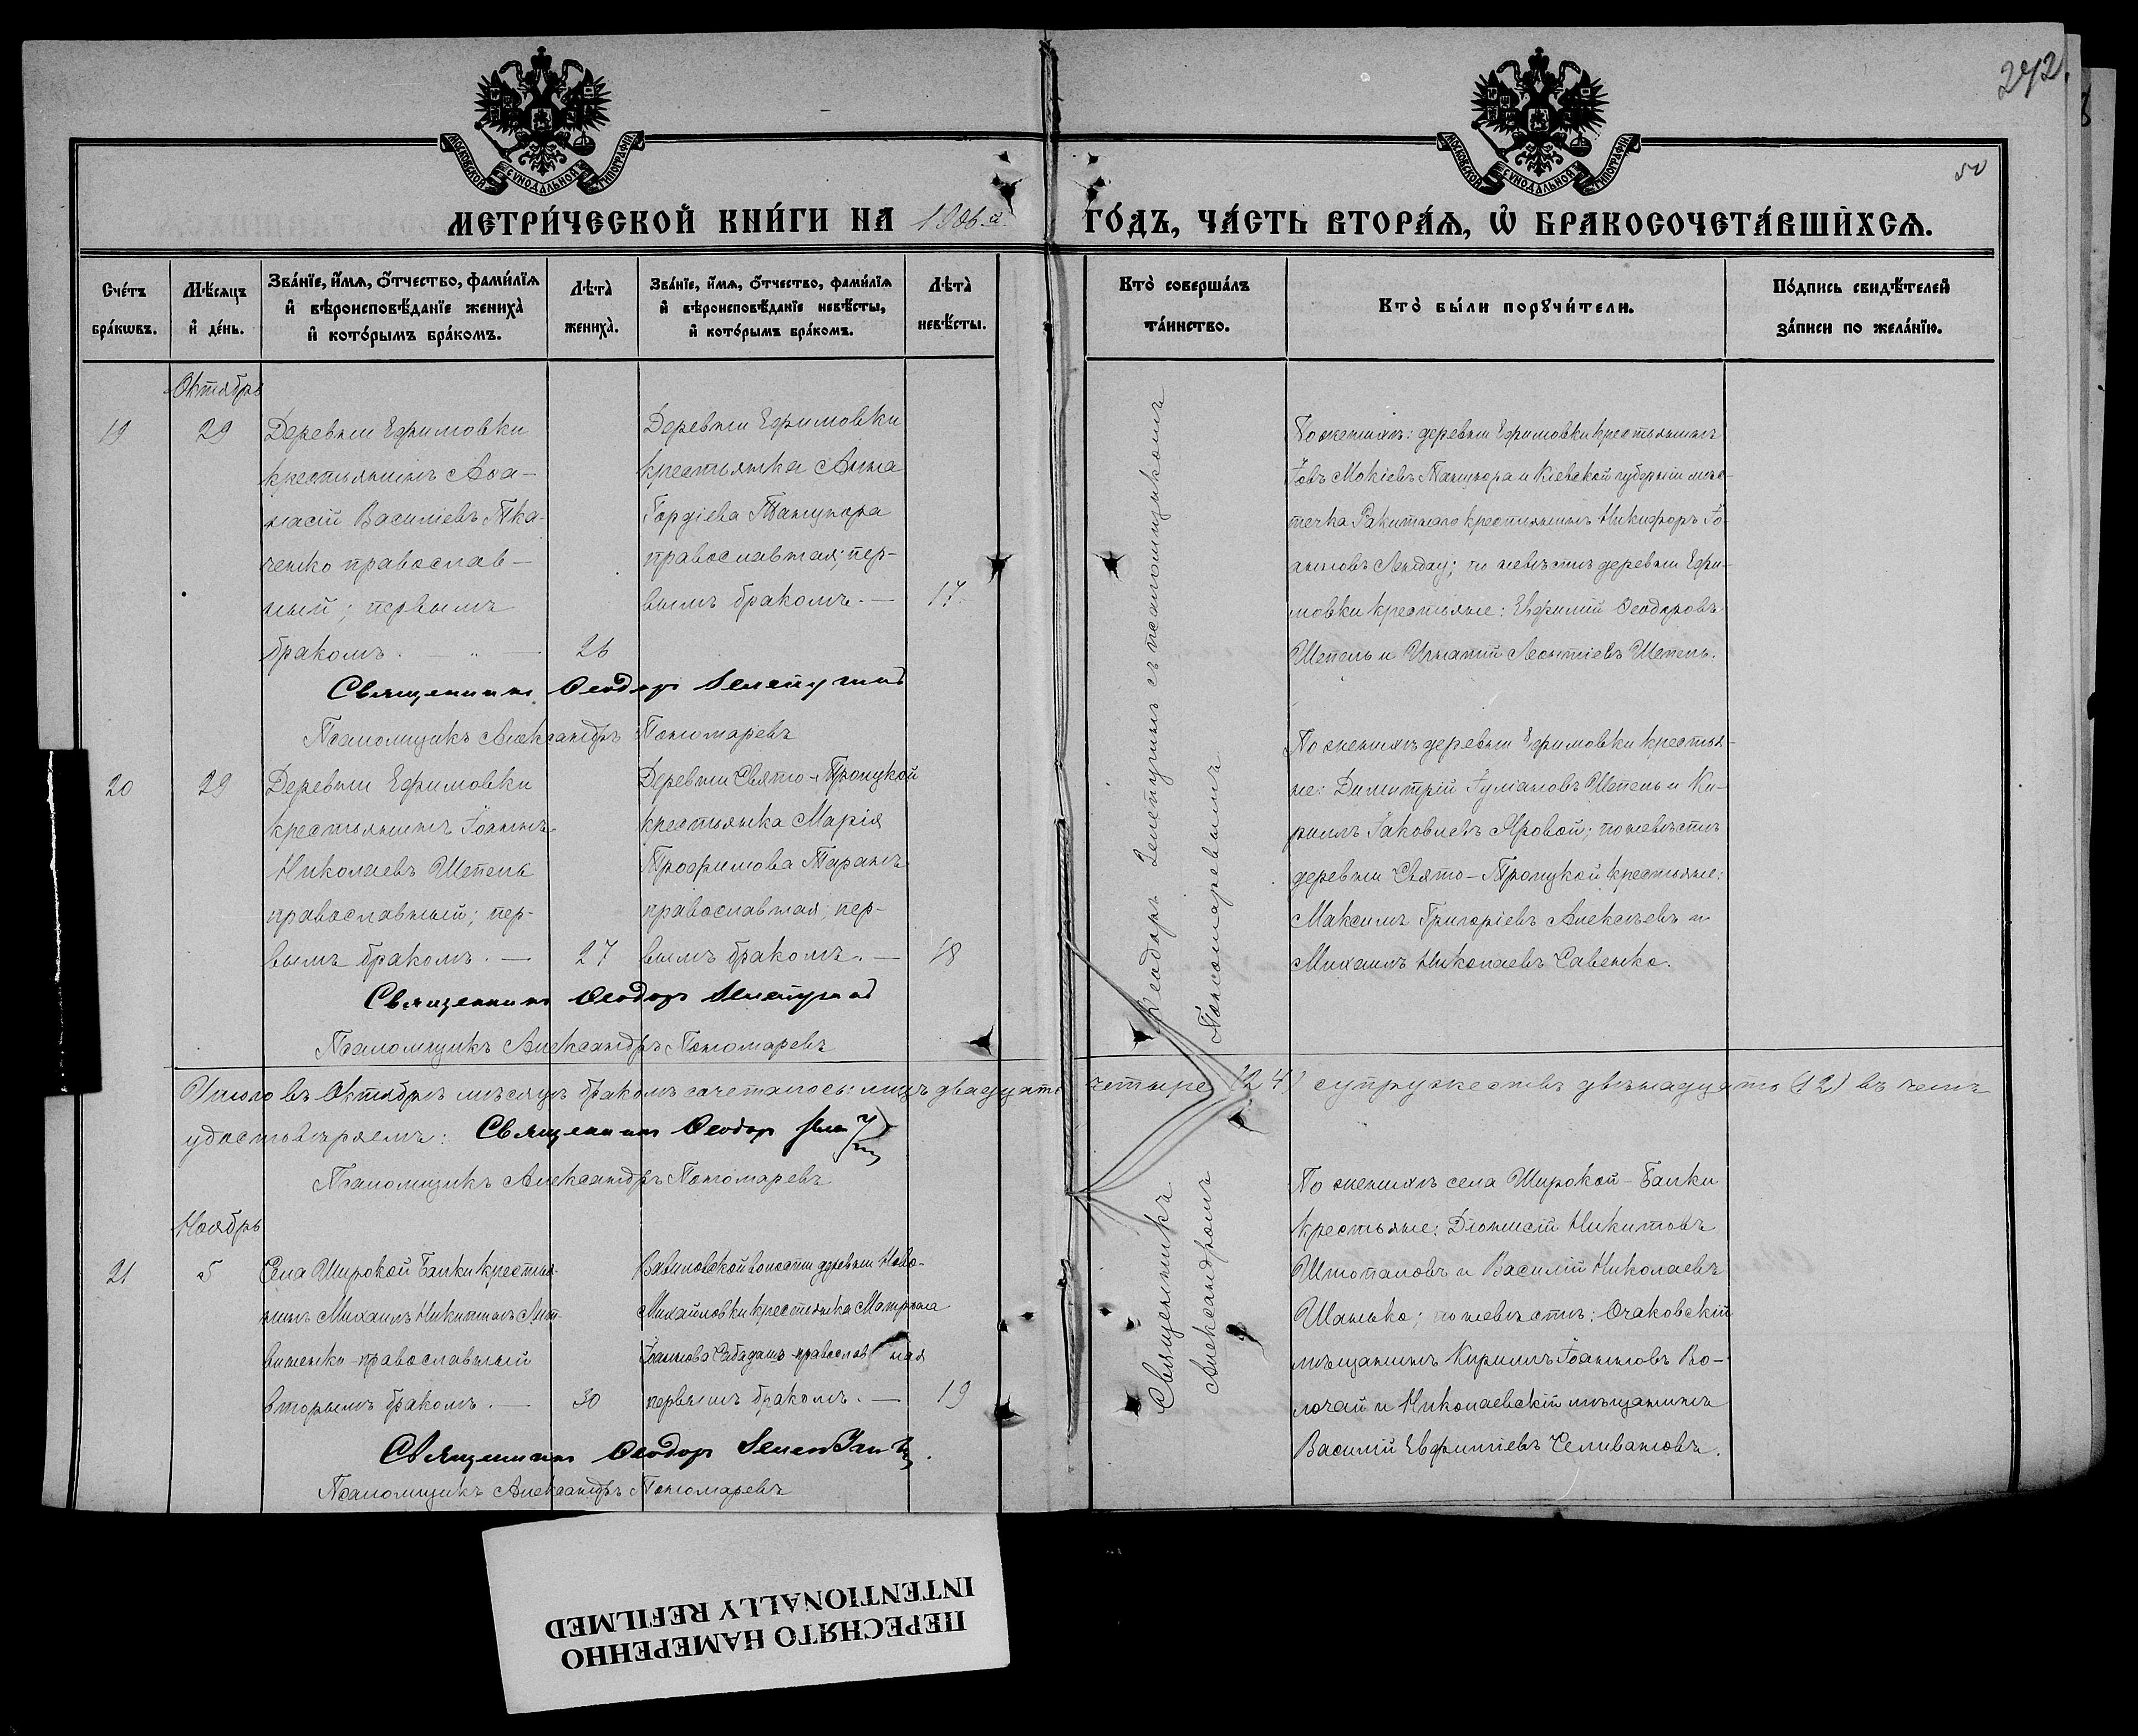 242
50
МОСКОВСКОЙ СѴНОДАЛЬНОЙ ТИПОГРАФІИ
МОСКОВСКОЙ СѴНОДАЛЬНОЙ ТИПОГРАФІИ
МЕТРИ́ЧЕСКОЙ КНИ́ГИ НА 1906-й ГО́ДЪ, ЧА́СТЬ ВТОРА́Я, Ѡ БРАКОСОЧЕТА́ВШИХСЯ.
Сче́тъ
бра́кѡвъ.
Мѣ́сяцъ
и҆ де́нь.
Зва́нїе, и҆́мя, ѻ҆́тчество, фами́лїя
и҆ вѣроисповѣ́данїе жениха̀
и҆ кото́рымъ бра́комъ.
Лѣта̀
жениха̀.
Зва́нїе, и҆́мя, ѻ҆́тчество, фами́лїя
и҆ вѣроисповѣ́данїе невѣ́сты,
и҆ кото́рымъ бра́комъ.
Лѣта̀
невѣ́сты.
Кто̀ соверша́лъ
та́инство.
Кто̀ бы́ли порꙋчи́тели.
По́дпись свидѣ́телей
за́писи по жела́нїю.
Октябрь
19
29
Деревни Ефимовки
крестьянинъ Аѳа-
насій Василіевъ Тка-
ченко православ-
ный; первымъ
бракомъ. — „ —
26
Деревни Ефимовки
крестьянка Анна
Гордіева Танцюра
православная; пер-
вымъ бракомъ. —
17.
По женихѣ: деревни Ефимовки крестьянинъ
Іовъ Мокіевъ Танцюра и Кіевской губерніи мѣс-
течка Ракитнаго крестьянинъ Никифоръ Іо-
анновъ ; по невѣстѣ деревни Ефи-
мовки крестьяне: Евфимій Ѳеодоровъ
Шепель и Игнатій Леонтіевъ Шепель.
Священникъ Ѳеодоръ
Псаломщикъ Александръ Пономаревъ
20
29
Деревни Ефимовки
крестьянинъ Іоаннъ
Николаевъ Шепель
православный; пер-
вымъ бракомъ. —
27
Деревни Свято-Троицкой
крестьянка Марія
Трофимова Таранъ
православная; пер-
вымъ бракомъ. —
18
По женихѣ деревни Ефимовки крестья-
не: Димитрій Іуліановъ Шепель и Ки-
риллъ Іаковлевъ Яровой; по невѣстѣ
деревни Свято-Троицкой крестьяне:
Максимъ Григоріевъ Алексѣевъ и
Михаилъ Николаевъ Савенко.
Священникъ Ѳеодоръ
Псаломщикъ Александръ Пономаревъ
Итого въ Октябрѣ мѣсяцѣ бракомъ сочеталось: лицъ двадцать четыре (24) супружествъ двѣнадцать (12) въ чемъ
удостовѣряемъ: Священникъ Ѳеодоръ
Псаломщикъ Александръ Пономаревъ
Ноябрь
21
5
Села Широкой Балки крестья-
нинъ Михаилъ Никитинъ Лит-
виненко православный
вторымъ бракомъ. —
30
волости деревни Ново-
Михайловки крестьянка Матрона
Іоаннова Сабадашъ православная
первымъ бракомъ. —
19
По женихѣ села Широкой-Балки
крестьяне: Діонисій Никитовъ
и Василій Николаевъ
Шанько; по невѣстѣ: Очаковскій
мѣщанинъ Кириллъ Іоанновъ Во-
лочай и Николаевскій мѣщанинъ
Василій Евфиміевъ Селивановъ.
Священникъ Ѳеодоръ
Псаломщикъ Александръ Пономаревъ
Священникъ Ѳеодоръ съ псаломщикомъ
Александромъ Пономаревымъ
ПЕРЕСНЯТО НАМЕРЕННО
INTENTIONALLY REFILMED